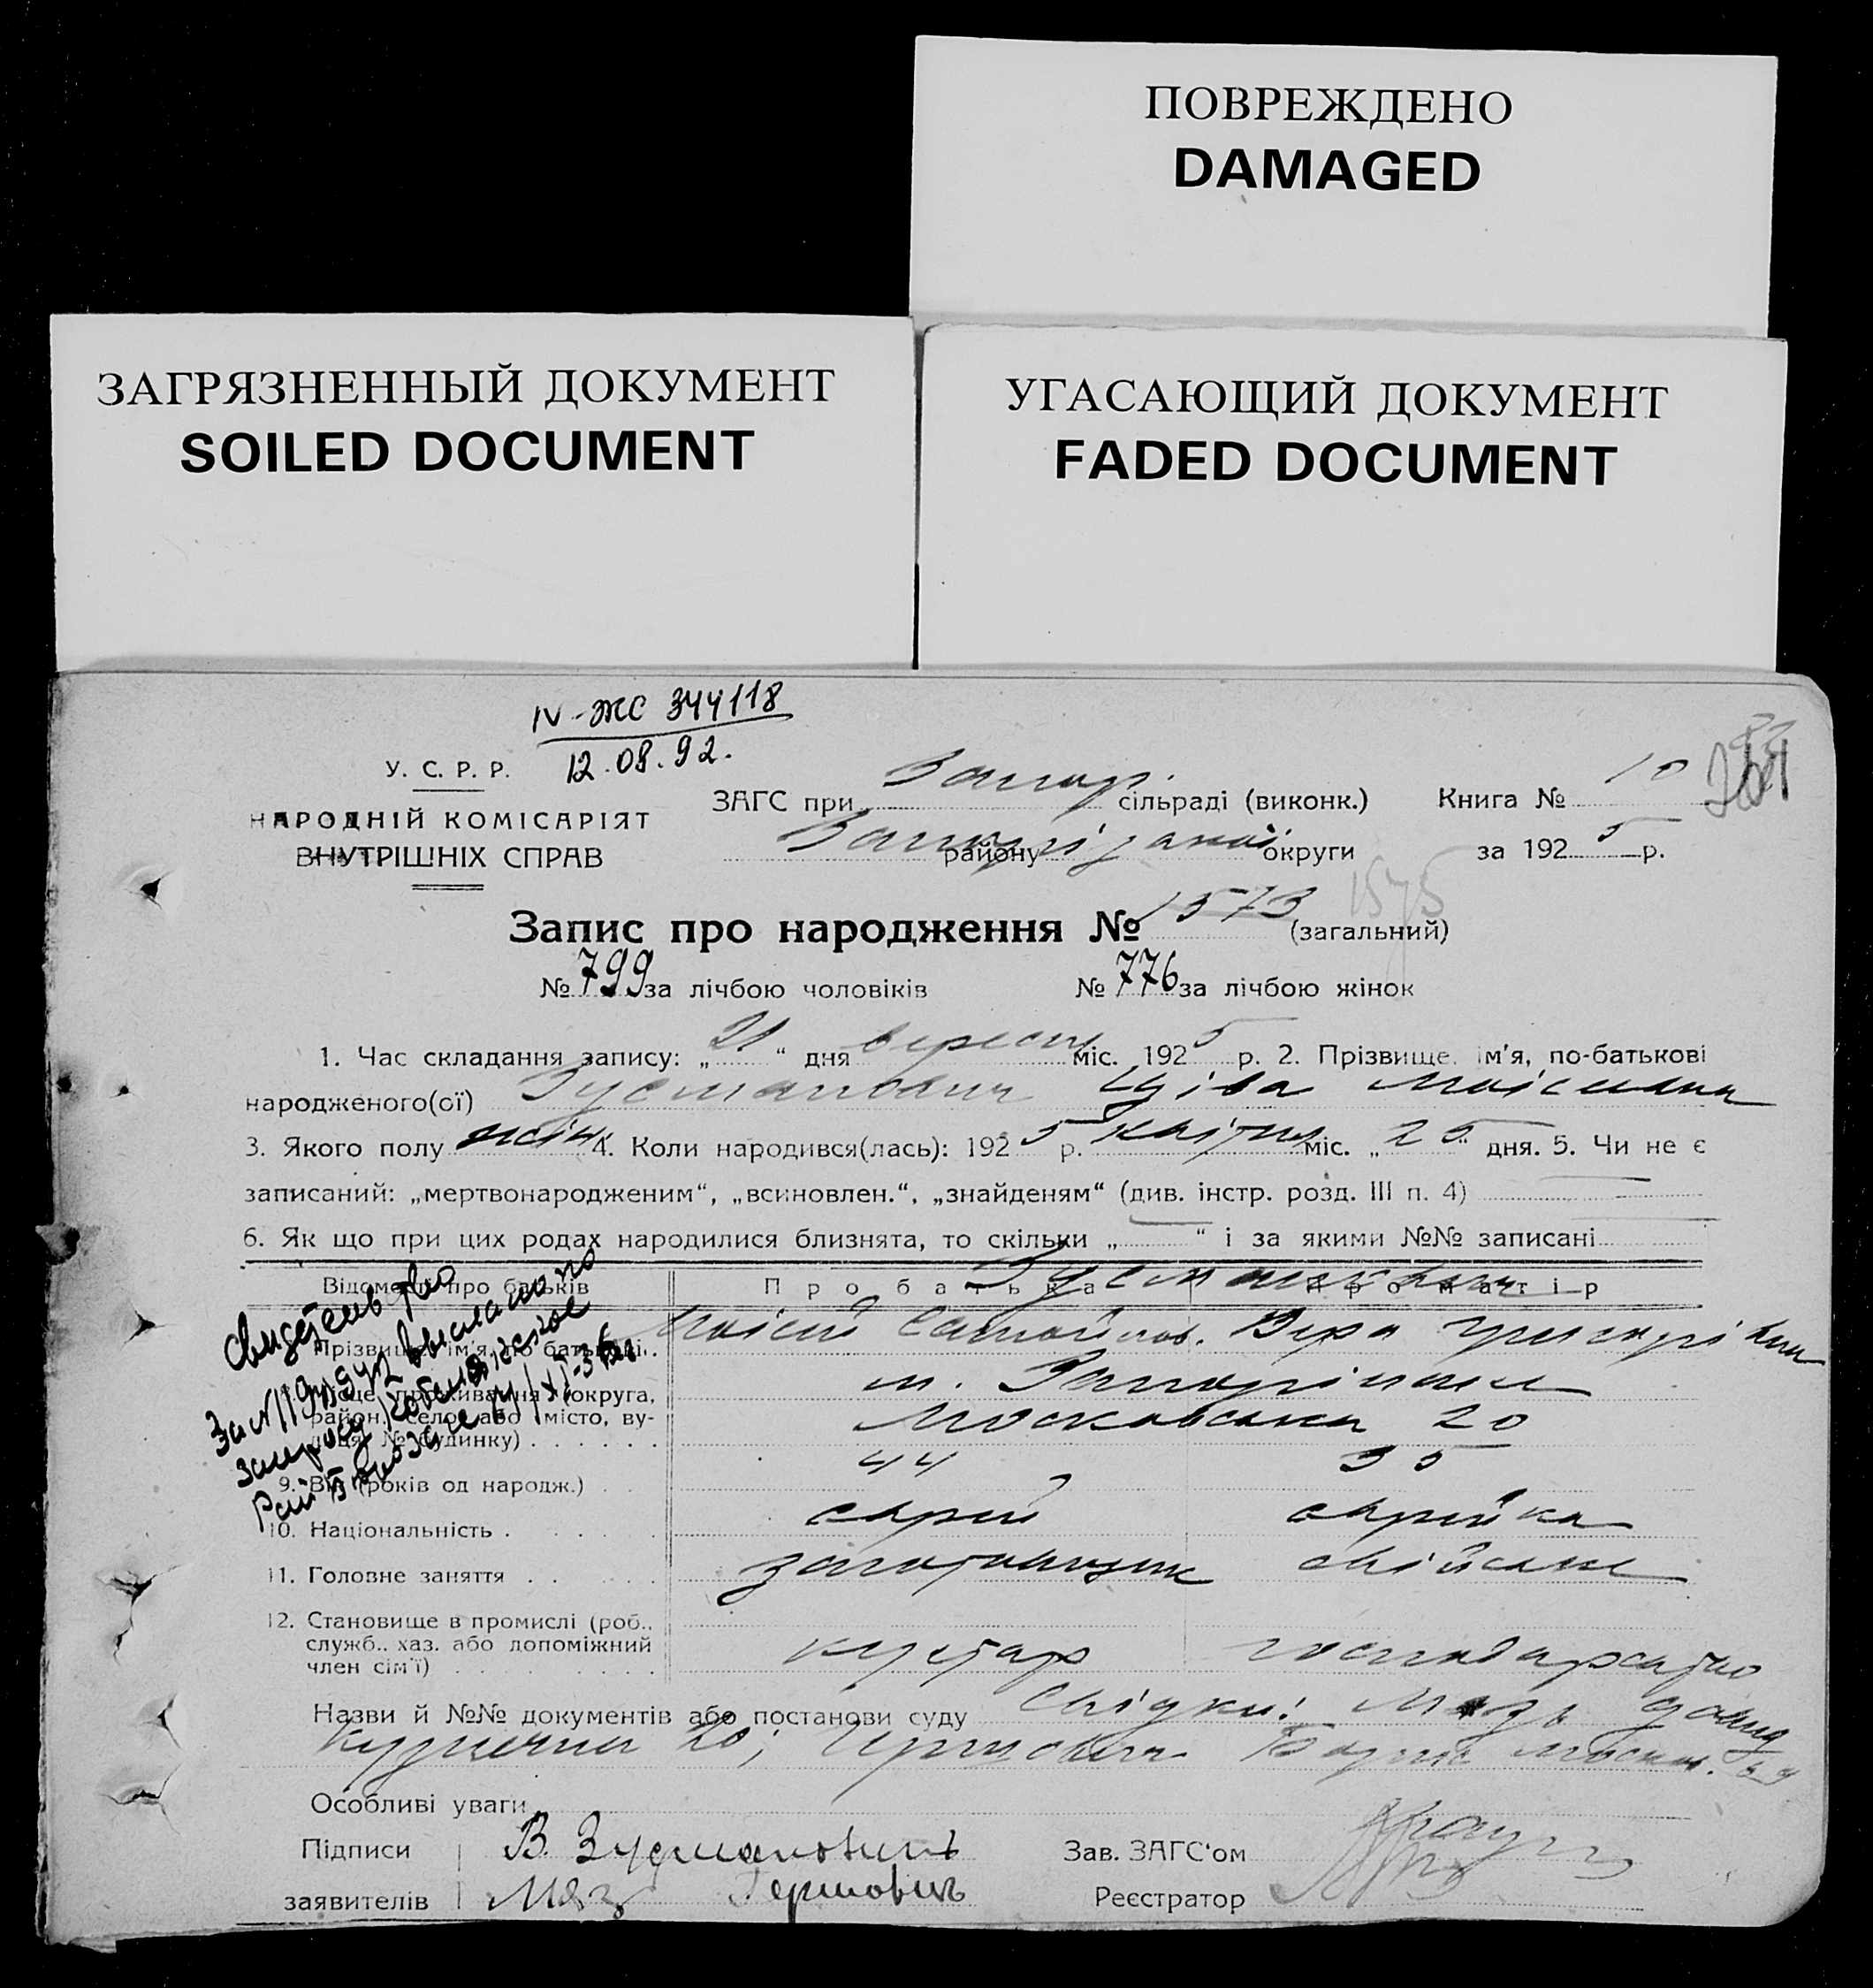 ПОВРЕЖДЕНО
DAMAGED
ЗАГРЯЗНЕННЫЙ ДОКУМЕНТ
SOILED DOCUMENT
УГАСАЮЩИЙ ДОКУМЕНТ
FADED DOCUMENT
IV-ЖС 344118
12.08.92.
У. С. Р. Р.
НАРОДНІЙ КОМІСАРІЯТ
ВНУТРІШНІХ СПРАВ
ЗАГС при Запор. сільраді (виконк.) Книга № 10
району округи за 1925 р.
Запис про народження № 1573 (загальний)
1575
№ 799 за лічбою чоловіків № 776 за лічбою жінок
1. Час складання запису: „21“ дня вересн міс. 1925 р. 2. Прізвище, ім'я, по-батькові
народженого(ої) Зусманович Ціва Моісеївна
3. Якого полу жін. 4. Коли народився(лась): 1925 р. квітня міс. „25“ дня. 5. Чи не є
записаний: „мертвонародженим“, „всиновлен.“, „знайденям“ (див. інстр. розд. III п. 4)
6. Як що при цих родах народилися близнята, то скільки „ “ і за якими №№ записані
Відомости про батьків Про батька Про матір
Зусманович
Прізвище, ім'я, по батькові Моісей Вера Григорівна
Місце проживання (округа, м. Запоріжжя
район, село або місто, ву-
лиця, № будинку) Московська 20
9. Вік (років од народж.) 44 35
10. Національність еврей еврейка
11. Головне заняття свійське
12. Становище в промислі (роб.,
служб., хаз. або допоміжний
член сім'ї) кустар господарство
Свидетельство
выслано по
запросу
Назви й №№ документів або постанови суду Свідки: Мазь
20; Гершович
Особливі уваги
Підписи В. Зусмановичъ Зав. ЗАГС'ом
заявителів Мяз Гершовичъ Реєстратор